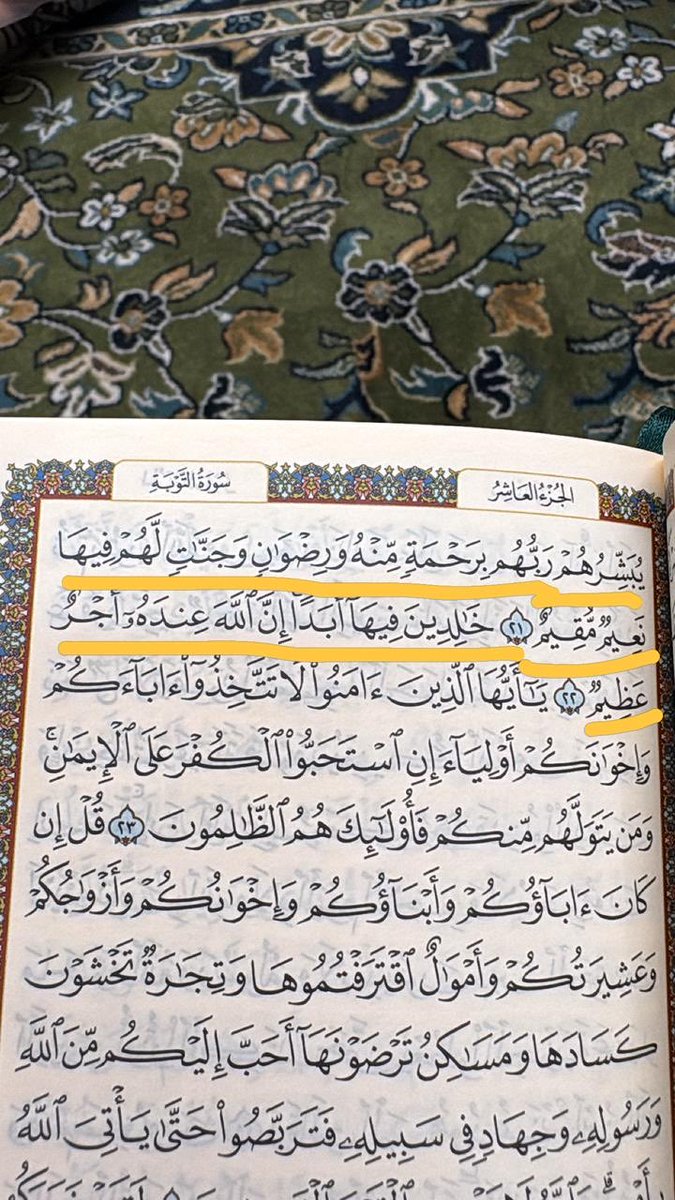 الجُزْءُ العَاشِرُ
سُورَةُ التَّوْبَةِ
يُبَشِّرُهُمْ رَبُّهُم بِرَحْمَةٍ مِّنْهُ وَرِضْوَٰنٍ وَجَنَّٰتٍ لَّهُمْ فِيهَا
نَعِيمٌ مُّقِيمٌ ٢١ خَٰلِدِينَ فِيهَآ أَبَدًا إِنَّ ٱللَّهَ عِندَهُۥٓ أَجْرٌ
عَظِيمٌ ٢٢ يَٰٓأَيُّهَا ٱلَّذِينَ ءَامَنُوا۟ لَا تَتَّخِذُوٓا۟ ءَابَآءَكُمْ
وَإِخْوَٰنَكُمْ أَوْلِيَآءَ إِنِ ٱسْتَحَبُّوا۟ ٱلْكُفْرَ عَلَى ٱلْإِيمَٰنِ ۚ
وَمَن يَتَوَلَّهُم مِّنكُمْ فَأُو۟لَٰٓئِكَ هُمُ ٱلظَّٰلِمُونَ ٢٣ قُلْ إِن
كَانَ ءَابَآؤُكُمْ وَأَبْنَآؤُكُمْ وَإِخْوَٰنُكُمْ وَأَزْوَٰجُكُمْ
وَعَشِيرَتُكُمْ وَأَمْوَٰلٌ ٱقْتَرَفْتُمُوهَا وَتِجَٰرَةٌ تَخْشَوْنَ
كَسَادَهَا وَمَسَٰكِنُ تَرْضَوْنَهَآ أَحَبَّ إِلَيْكُم مِّنَ ٱللَّهِ
وَرَسُولِهِۦ وَجِهَادٍ فِى سَبِيلِهِۦ فَتَرَبَّصُوا۟ حَتَّىٰ يَأْتِىَ ٱللَّهُ